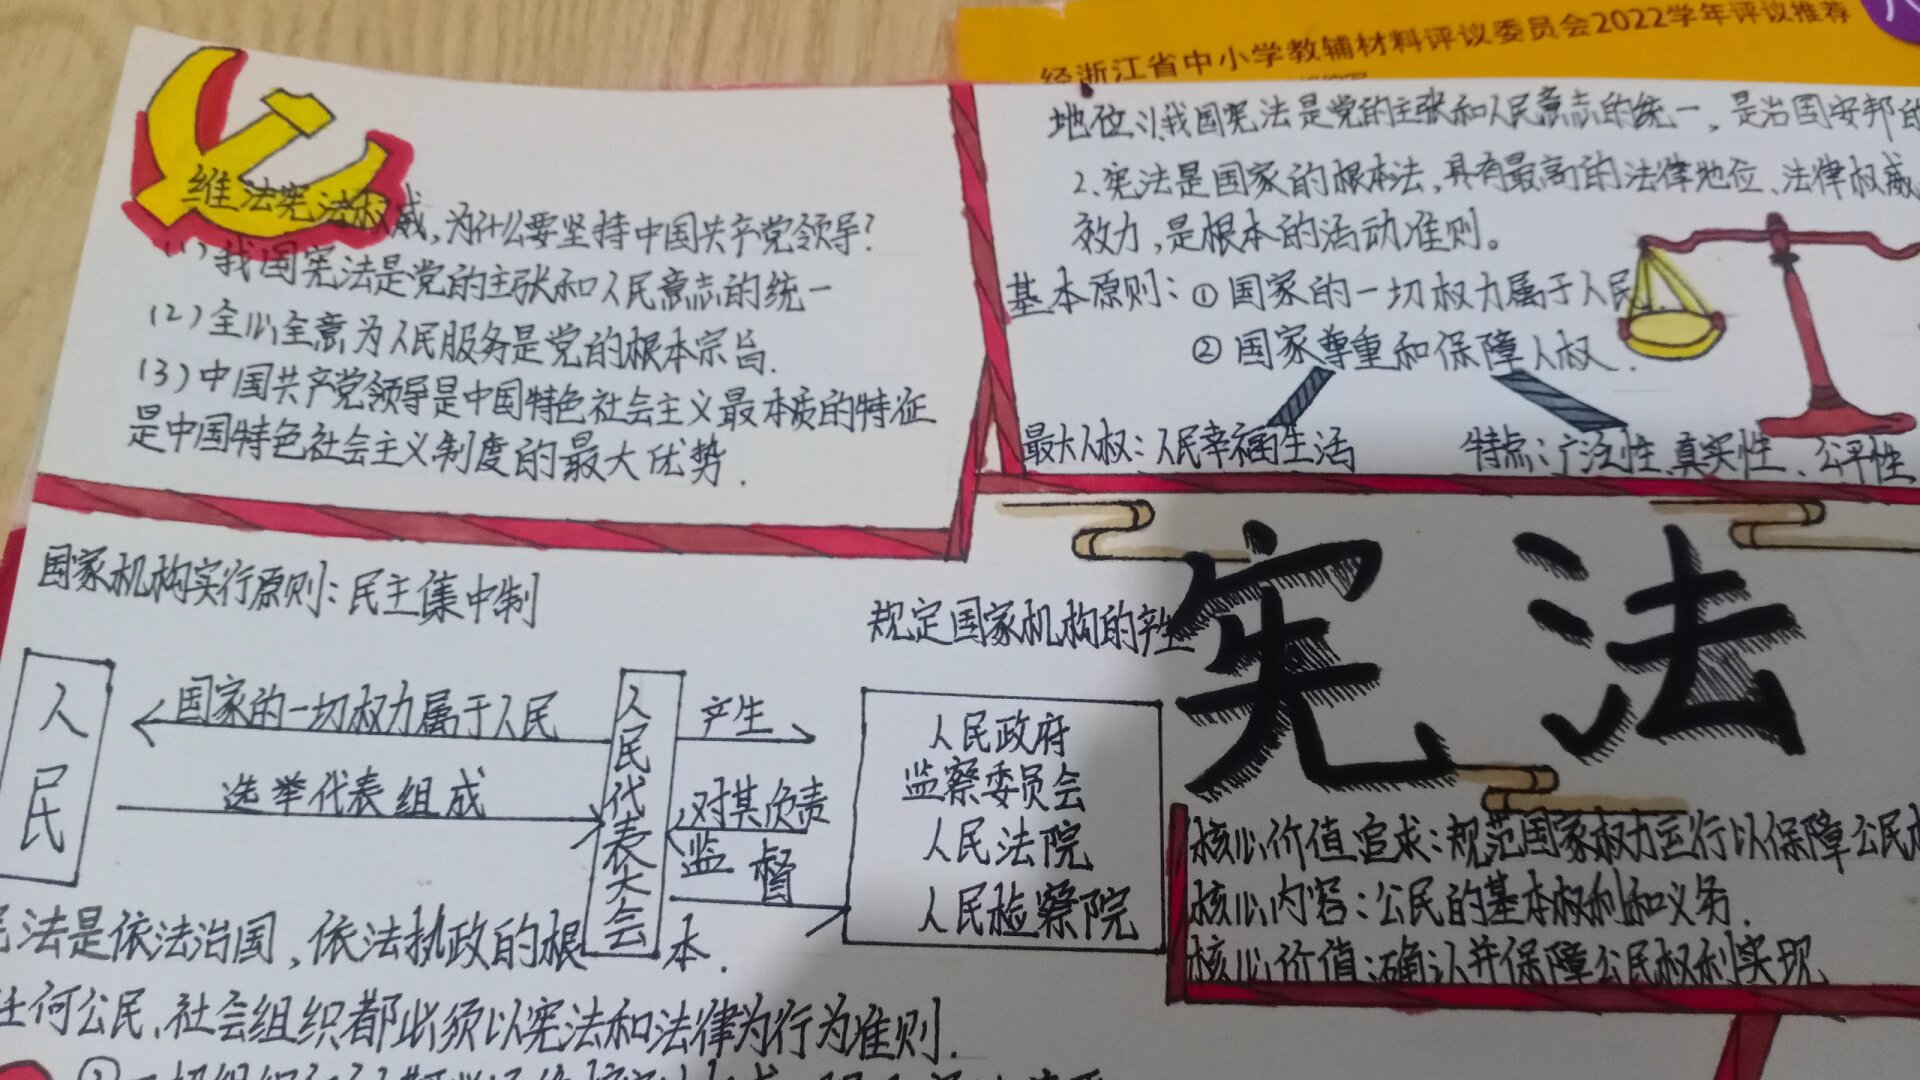 经浙江省中小学教辅材料评议委员会2022学年评议推荐
维法宪法权威,为什么要坚持中国共产党领导?
(1)我国宪法是党的主张和人民意志的统一
(2)全心全意为人民服务是党的根本宗旨.
(3)中国共产党领导是中国特色社会主义最本质的特征
是中国特色社会主义制度的最大优势.
地位:1.我国宪法是党的主张和人民意志的统一,是治国安邦的
2.宪法是国家的根本法,具有最高的法律地位、法律权威
效力,是根本的活动准则。
基本原则:①国家的一切权力属于人民
②国家尊重和保障人权.
最大人权:人民幸福生活
特点:广泛性、真实性、公平性
宪法
国家机构实行原则:民主集中制
规定国家机构的产生
人民
国家的一切权力属于人民
选举代表组成
人民代表大会
产生
对其负责
监督
人民政府
监察委员会
人民法院
人民检察院
核心价值追求:规范国家权力运行以保障公民
核心内容:公民的基本权利和义务.
核心价值:确认并保障公民权利实现
法是依法治国,依法执政的根本.
任何公民,社会组织都必须以宪法和法律为行为准则.